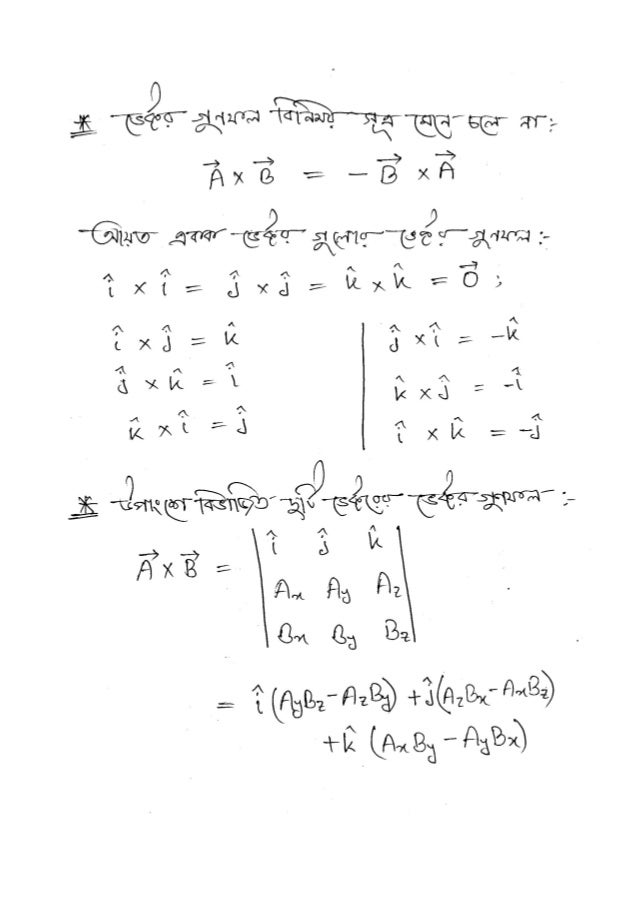 * ভেক্টর গুণফল বিনিময় সূত্র মেনে চলে না :-
A⃗ × B⃗ = - B⃗ × A⃗
আয়ত একক ভেক্টর গুলোর ভেক্টর গুণফল :-
î × î = ĵ × ĵ = k̂ × k̂ = 0⃗ ;
î × ĵ = k̂ | ĵ × î = -k̂
ĵ × k̂ = î | k̂ × ĵ = -î
k̂ × î = ĵ | î × k̂ = -ĵ
* উপাংশে বিভাজিত দুটি ভেক্টরের ভেক্টর গুণফল :-
A⃗ × B⃗ = | î ĵ k̂ |
| Ax Ay Az |
| Bx By Bz |
= î (AyBz - AzBy) + ĵ (AzBx - AxBz)
+ k̂ (AxBy - AyBx)